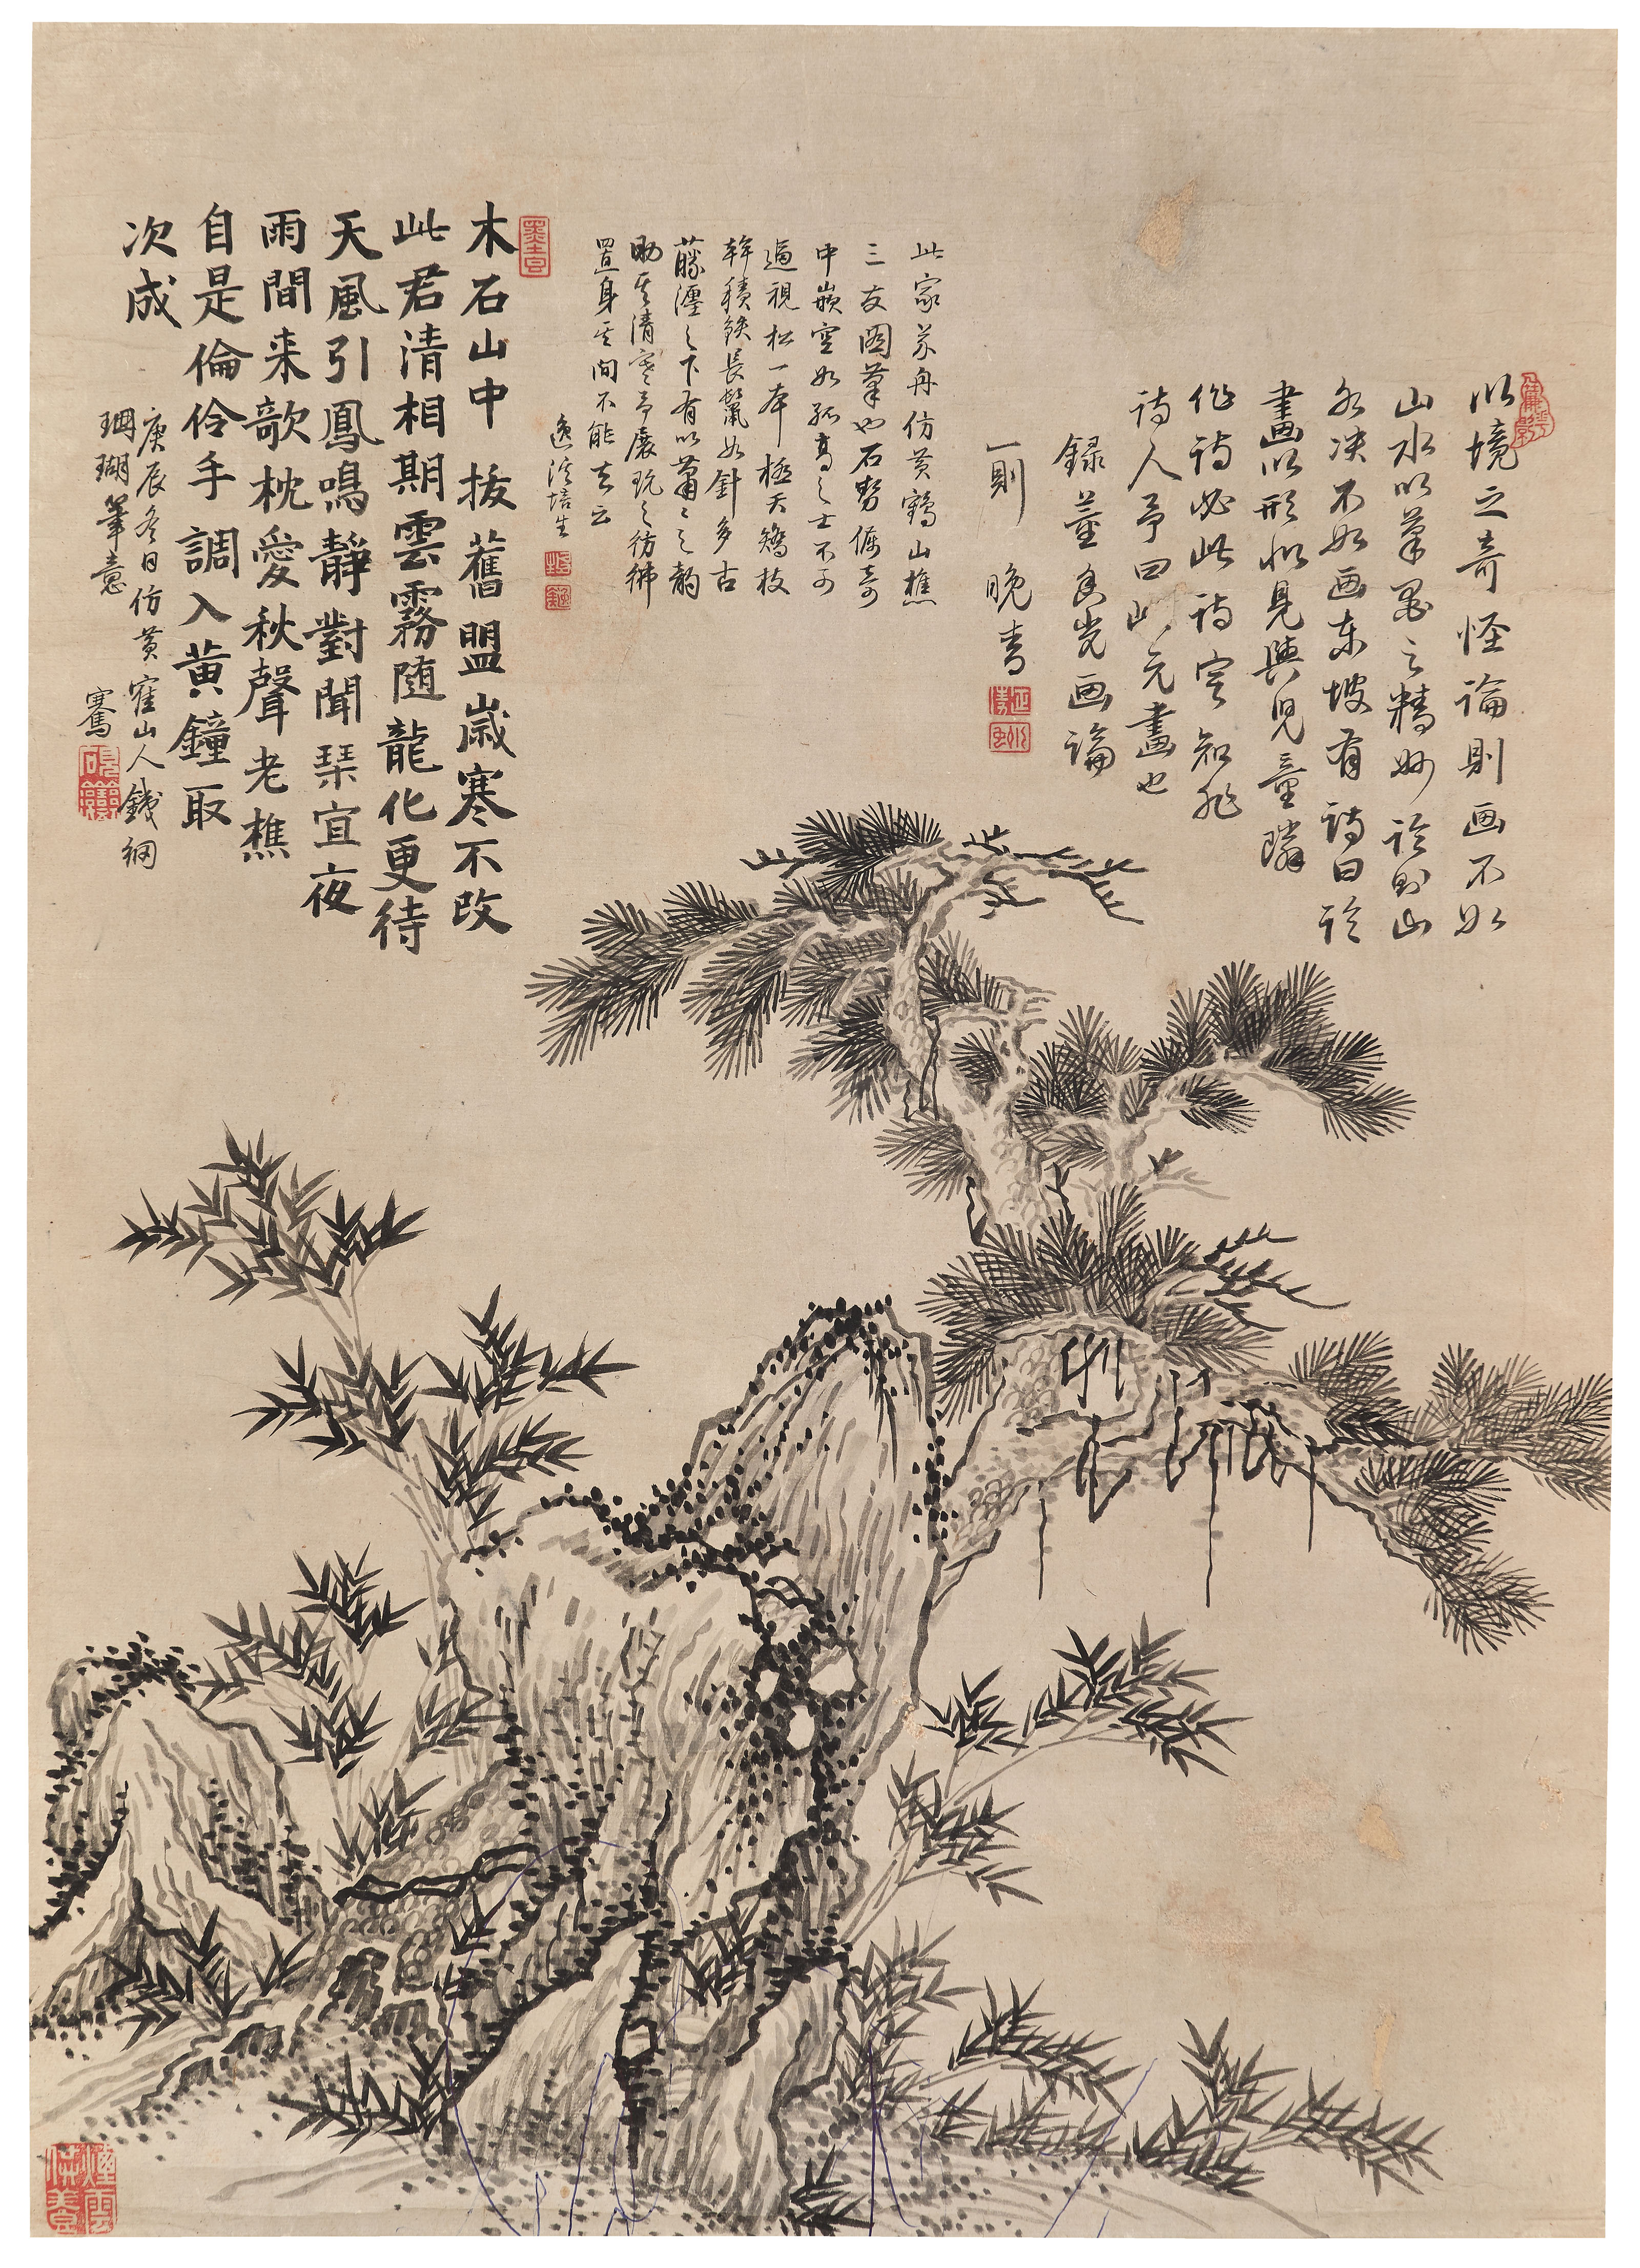 以境之奇怪論則画不如
山水以筆墨之精妙論則山
水决不如画東坡有詩曰論
畫以形似見與児童隣
作詩必此詩定知非
詩人予曰此元畫也
録董思光画論
一則 晚青
此家芥舟仿黄鶴山樵
三友圖筆也石勢倔奇
中嵌空如孤高之士不可
逼視松一本極夭矯枝
幹積鉄長鬣如針多古
藤瀍之下有以蕭〻之韵
助其清寒予展玩之彷彿
置身其间不能去云
逸溪培生
墨吉
木石山中
拔舊盟嵗寒不改
此君清相期雲霧随龍化更待
天風引鳳鳴靜對聞琹宜夜
雨間来歌枕愛秋聲老樵
自是倫伶手調入黄鐘取
次成
庚辰冬日仿黄寉山人錢網
珊瑚筆意
騫
煙雲供養